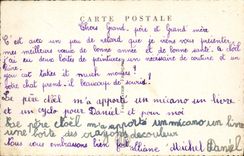 CARTE POSTALE
Chers Grand-père et Grand-mère
C'est avec un peu de retard que je vous présenter
mes meilleurs vœux de bonne année et de bonne santé. la Noël
j'ai eu deux boîte de peinture un nécessaire de couture et un
livre.
chat prend beaucoup de souris!
Le père Noël m'a apporté un mécano un livre
et un cyclo pour Daniel et pour moi
le père Noël m'a apporté un mécano un livre
une boîte des crayons de couleur
Nous vous embrassons bien fort Michel Daniel